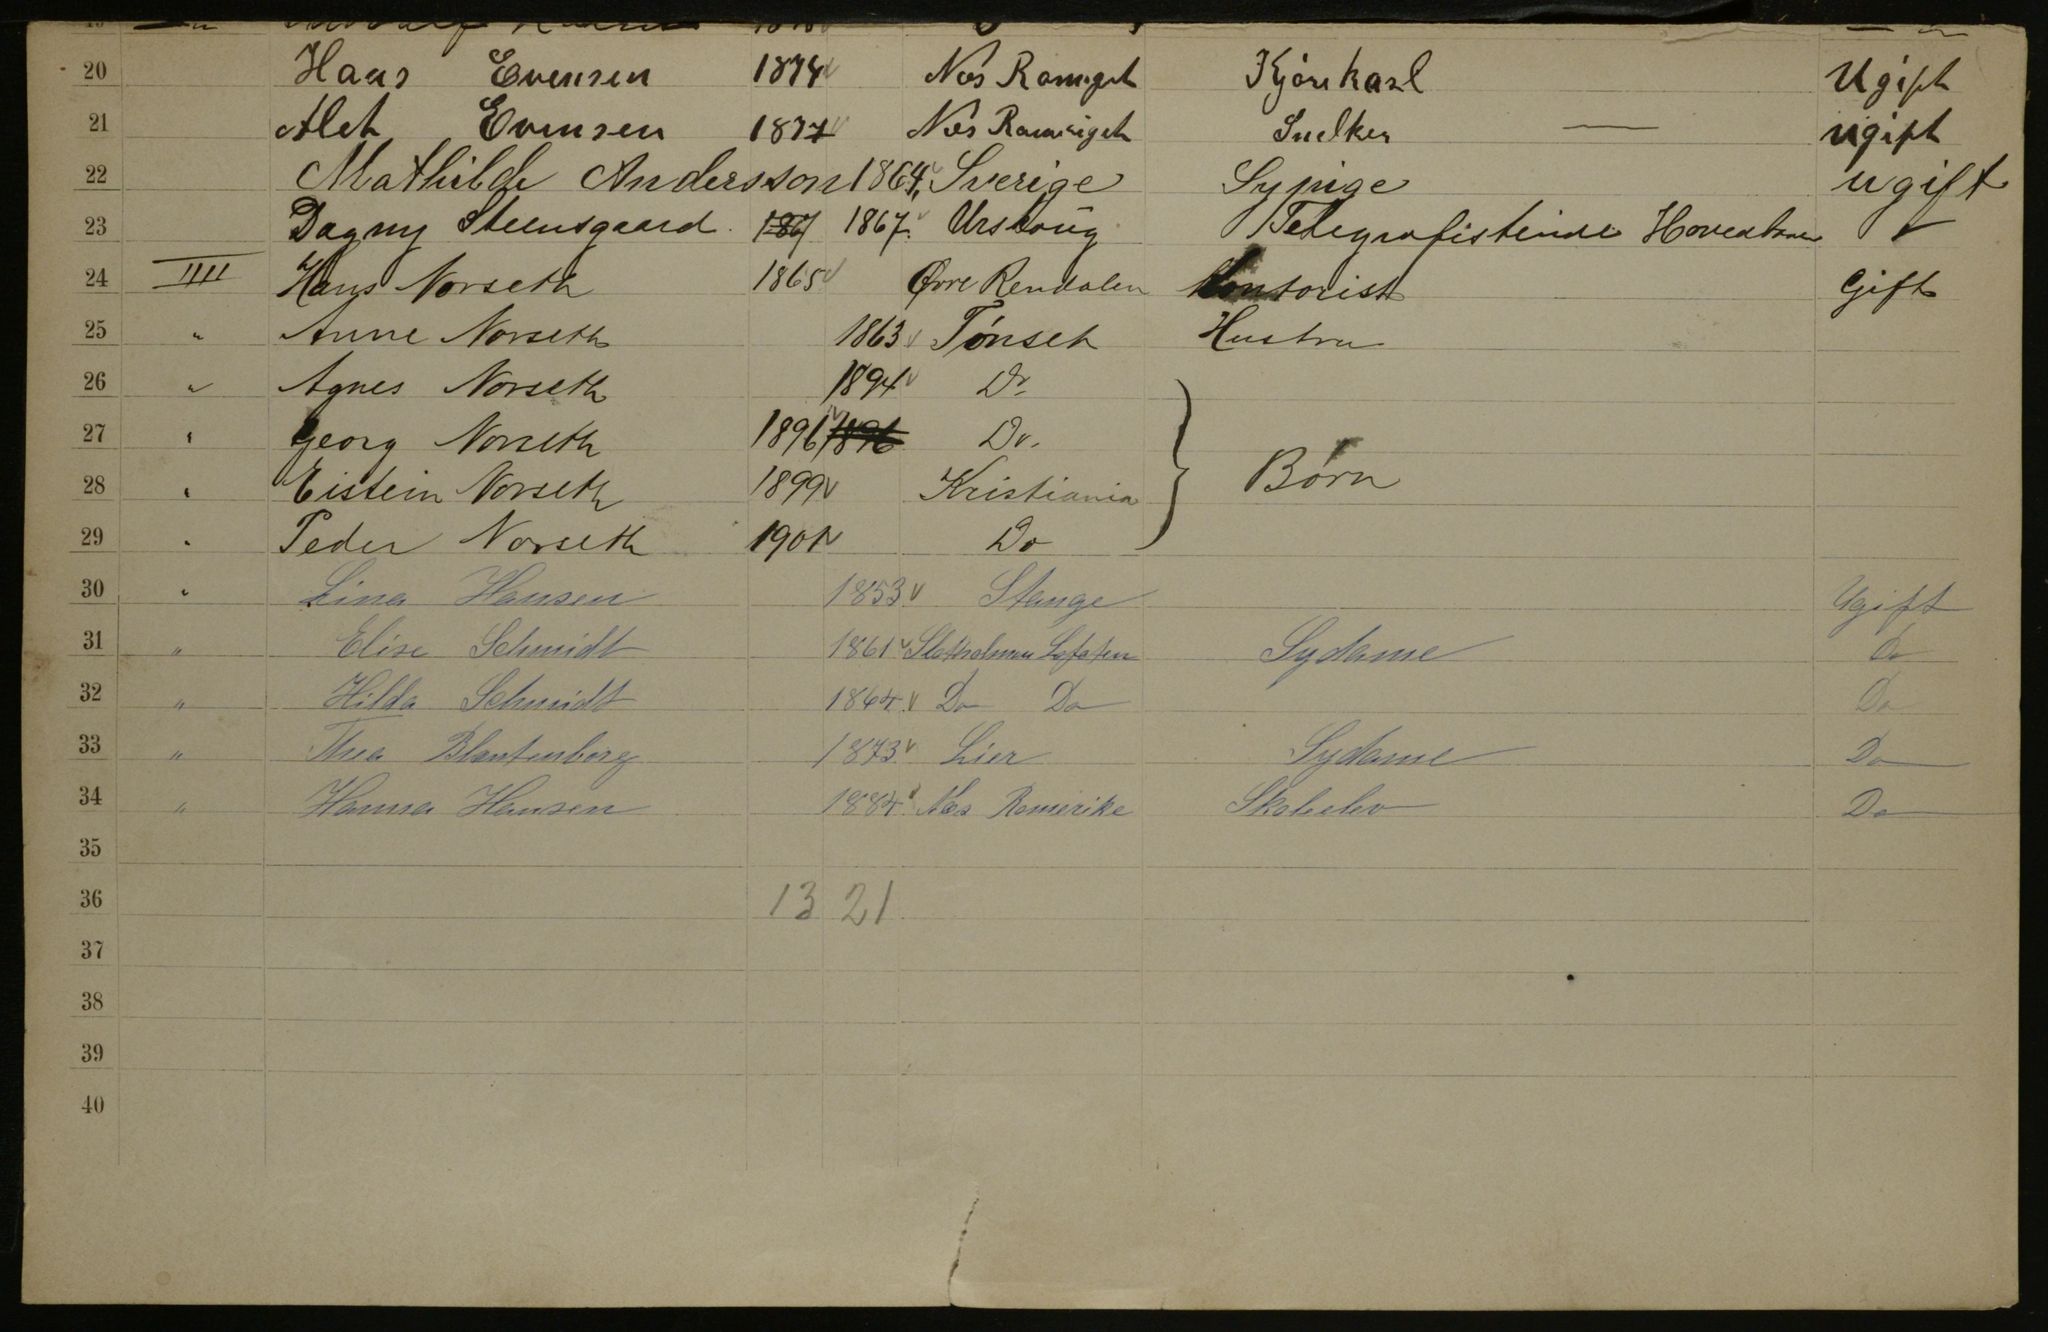 20 Hans Evensen 1874 Nes Romgrk Kjørekarl Ugift
21 Alet Evensen 1877 Nes Romerigek Snelker — ugift
22 Mathilde Andersson 1864 Sverige Sypige ugift
23 Dagny Steensgaard 1867 1867. Urskoug Telegrafistinde Hovedban
24 IIII Hans Norseth 1865 Øvre Rendalen Kontorist Gift
25 " Anne Norseth 1863 Tønset Hustru
26 " Agnes Norseth 1894 Do
27 " Georg Norseth 1896 1896 Do.
28 " Eistein Norseth 1899 Kristiania Børn
29 " Peder Norseth 1901 Do
30 " Lina Hansen 1853 Stange Ugift
31 " Elise Schmidt 1861 Lofoten Sydame Do
32 " Hilda Schmidt 1864 Do Do Do
33 " Thea Blantenborg 1873 Lier Sydame Do
34 " Hanna Hansen 1884 Nes Romerike Skoleelev Do
35
36 13 21
37
38
39
40